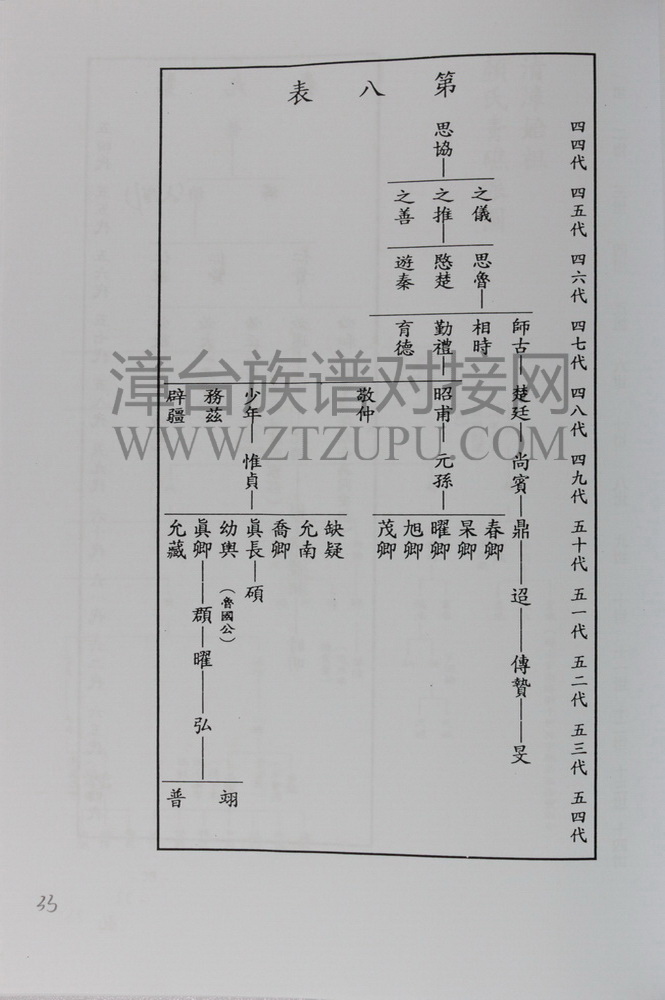 第八表
四四代
思協
四五代
之儀
之推
之善
四六代
思魯
愍楚
遊秦
四七代
師古
相時
勤禮
育德
四八代
楚廷
昭甫
敬仲
少年
務茲
辟疆
四九代
尚賓
元孫
惟貞
五十代
鼎
春卿
杲卿
曜卿
旭卿
茂卿
缺疑
允南
喬卿
眞長
幼輿
眞卿
允藏
五一代
迢
碩
頵
(魯國公)
五二代
傳贄
曜
五三代
旻
弘
五四代
翊
普
漳台族谱对接网
WWW.ZTZUPU.COM
33